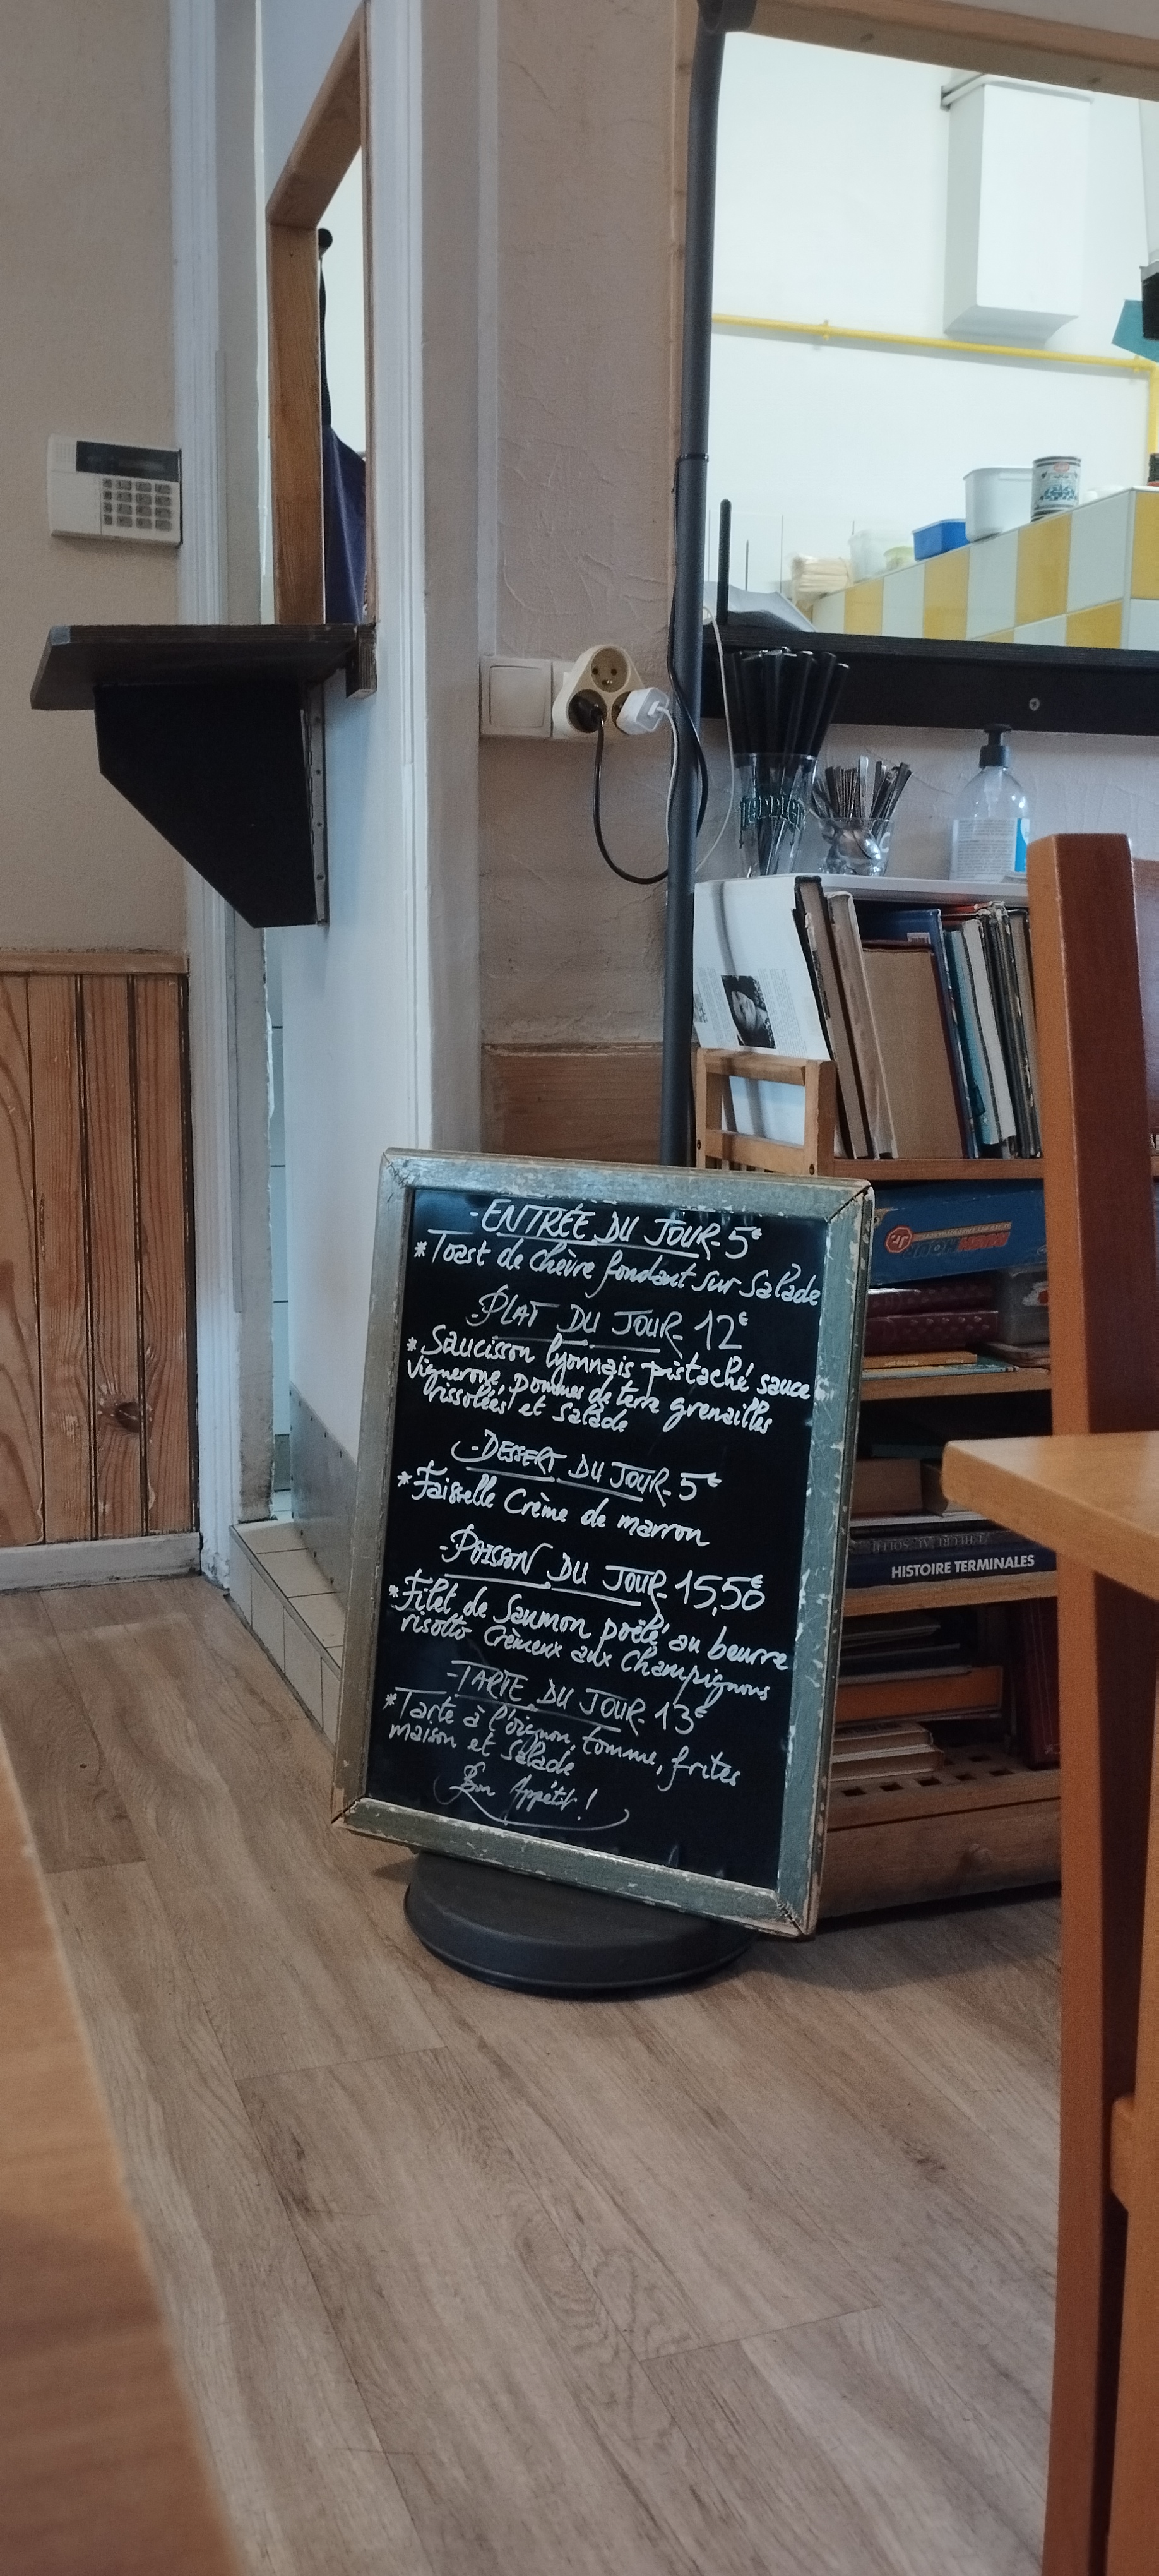 - ENTRÉE DU JOUR - 5€
* Toast de chèvre fondant sur Salade
- PLAT DU JOUR - 12€
* Saucisson lyonnais pistaché sauce
vigneronne, pommes de terre grenailles
rissolées et Salade
- DESSERT DU JOUR - 5€
* Faisselle Crème de marron
- POISSON DU JOUR - 15,50€
* Filet de Saumon poêlé au beurre
risotto Crèmeux aux Champignons
- TARTE DU JOUR - 13€
* Tarte à l'oignon, tomme, frites
maison et Salade
Bon Appétit !
perrier
HISTOIRE TERMINALES